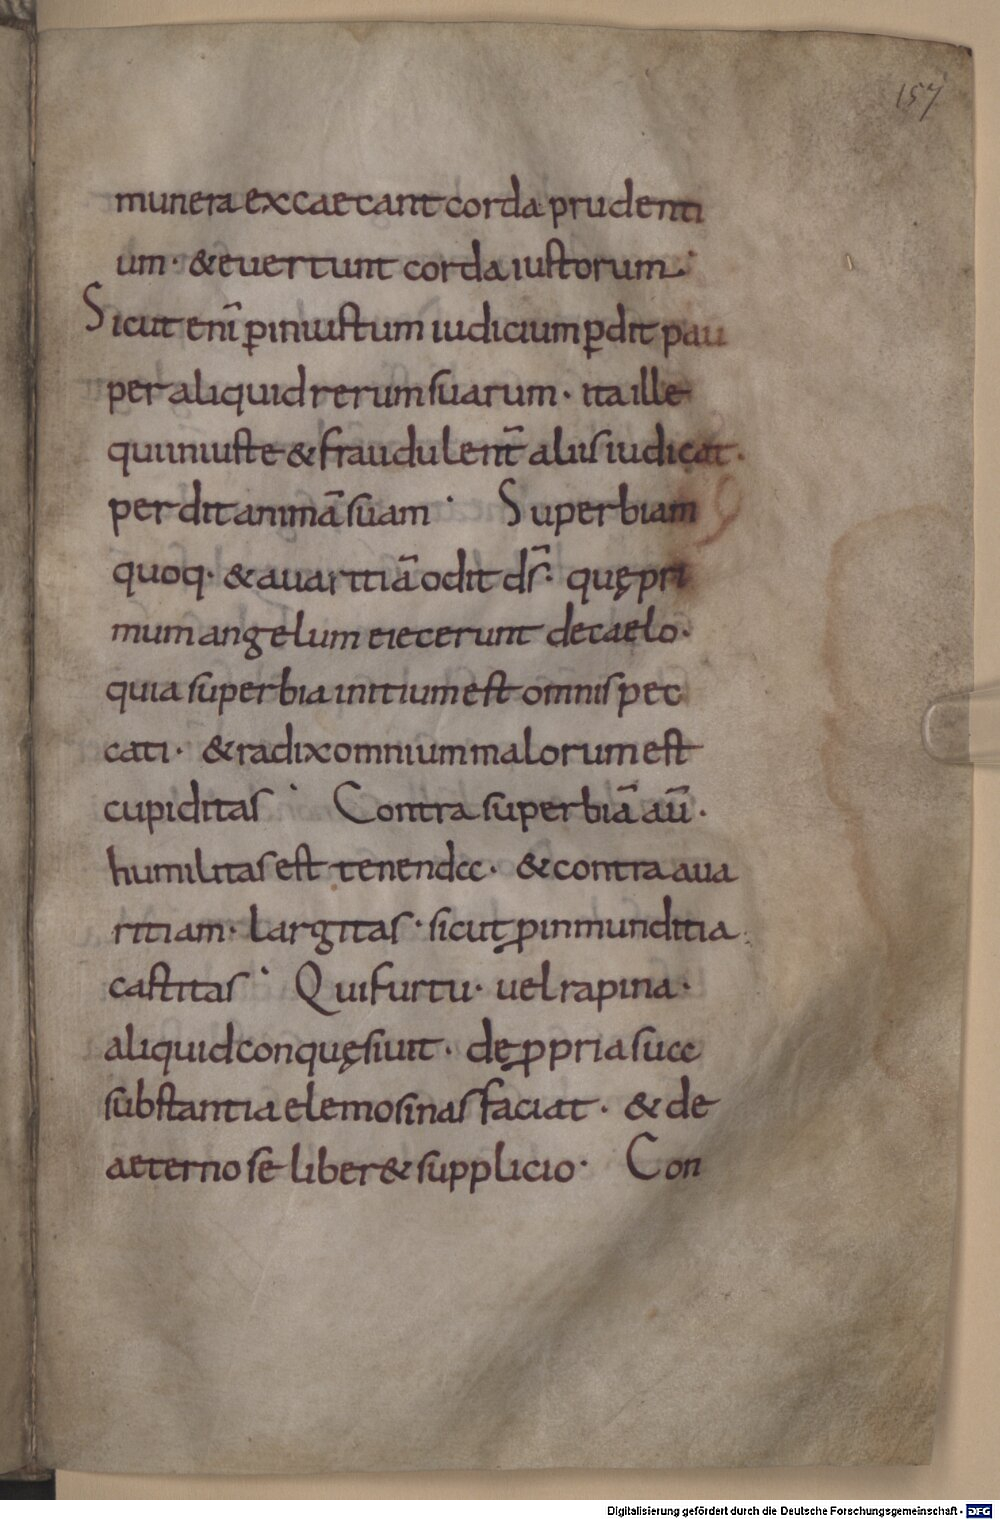 157
munera excaecant corda prudenti
um· &euertunt corda iustorum·
Sicut eni̅ ꝑ iniustum iudicium ꝑdit pau
per aliquid rerum suarum· ita ille
qui iniuste & fraudulent̅ aliis iudicat·
perdit anima̅ suam· Superbiam
quoq· & auaritia̅ odit ds̅· quę pri
mum angelum eiecerunt de caelo·
quia superbia initium est omnis pec
cati· & radix omnium malorum est
cupiditas· Contra superbia̅ au̅·
humilitas est tenenda· & contra aua
ritiam· largitas· sicut ꝑ inmunditia
castitas· Qui furtu· uel rapina·
aliquid conquęsiuit· de ꝓpria sua
substantia elemosinas faciat· & de
aeterno se liber& supplicio· Con
Digitalisierung gefördert durch die Deutsche Forschungsgemeinschaft - DFG